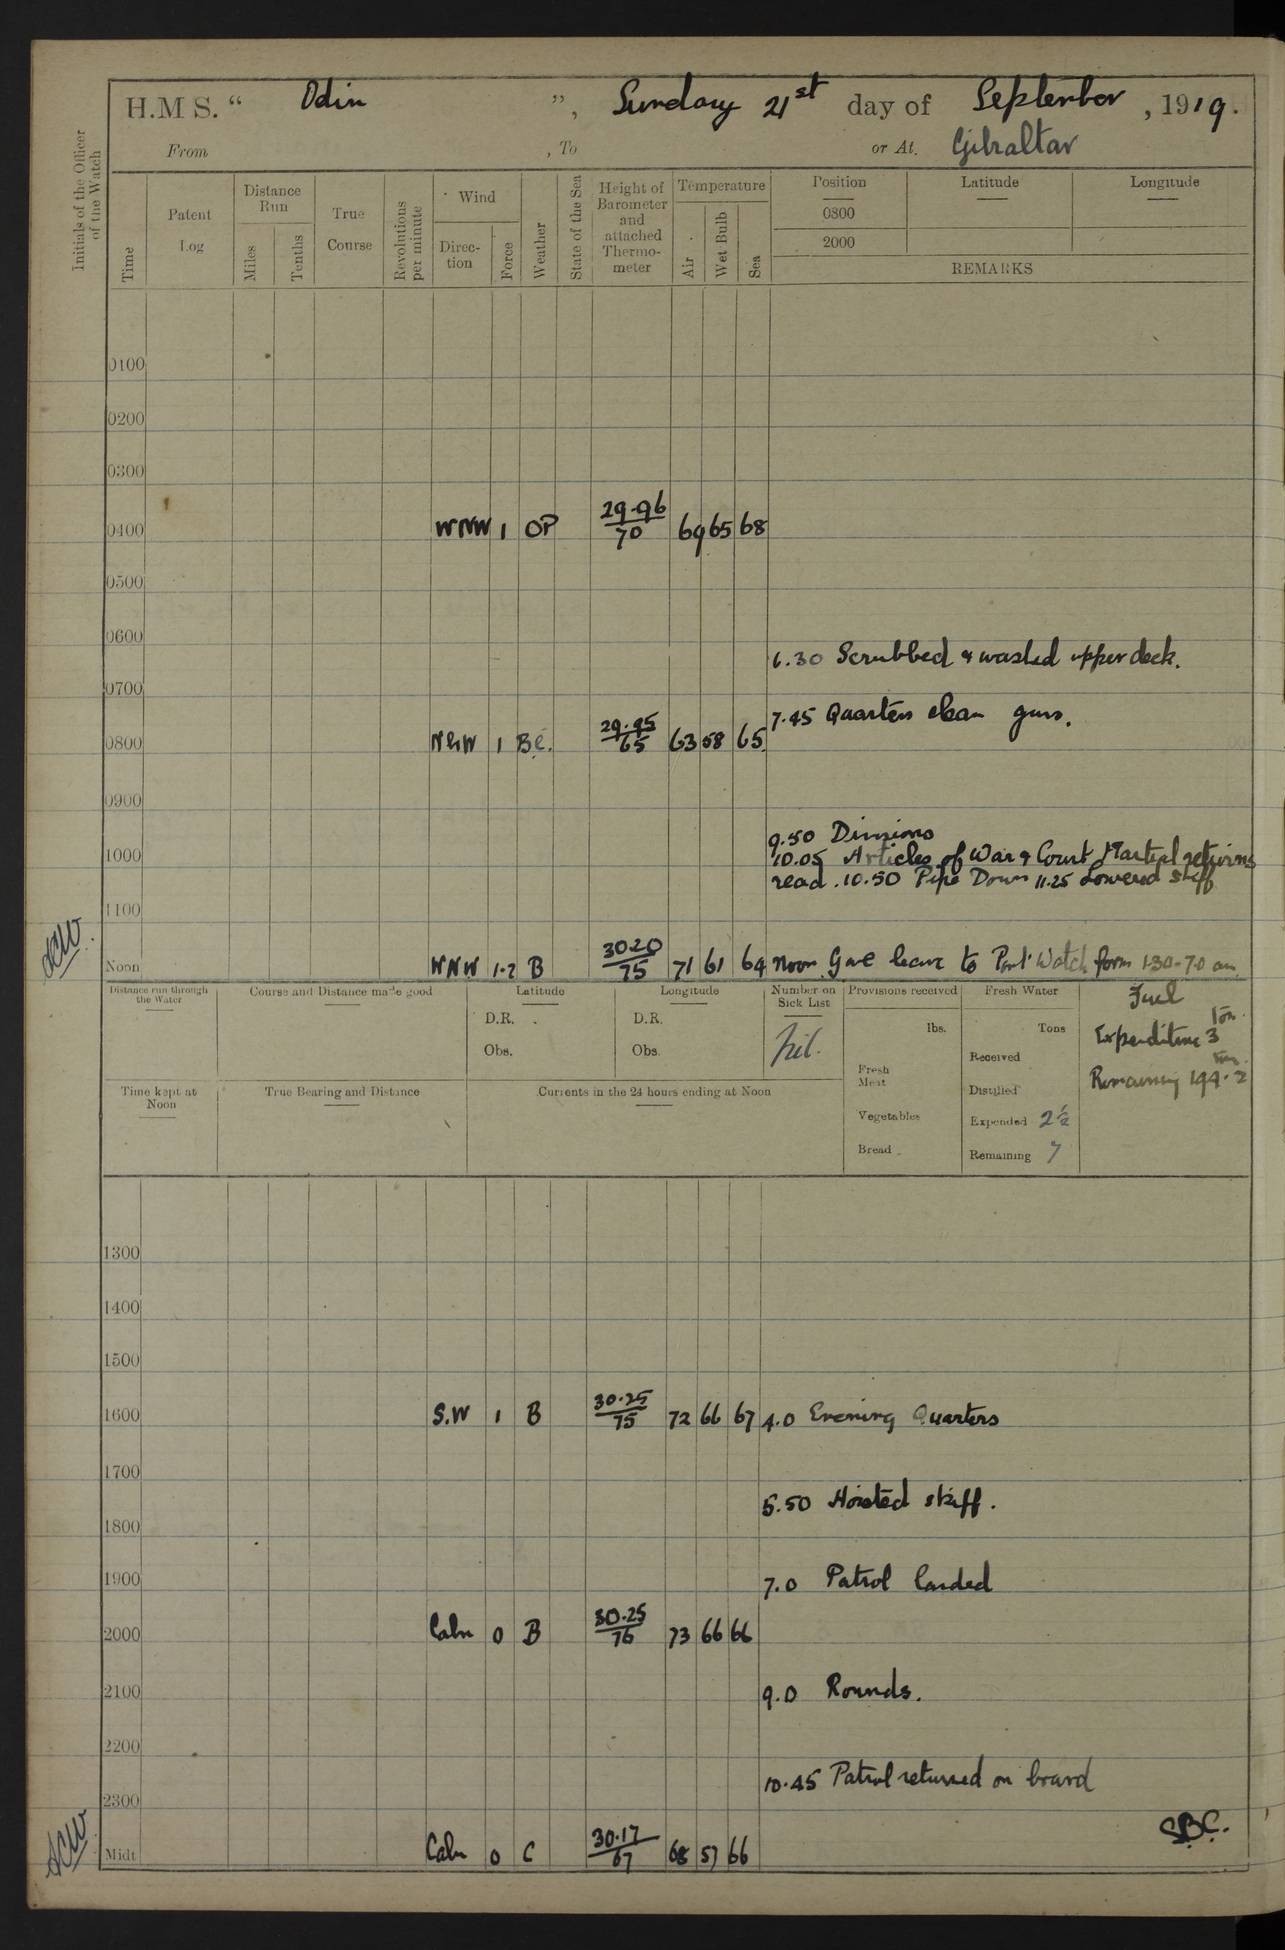 H.M.S. “ Odin ”, Sunday 21st day of September, 1919.
From , To or At. Gibraltar
Initials of the Officer of the Watch
Time
Patent Log
Distance Run
Miles
Tenths
True Course
Revolutions per minute
Wind
Direc-tion
Force
Weather
State of the Sea
Height of Barometer and attached Thermo-meter
Temperature
Air
Wet Bulb
Sea
Position Latitude Longitude
0800
2000
REMARKS
0100
0200
0300
0400 WNW 1 OP 29.96/70 69 65 68
0500
0600
6.30 Scrubbed & washed upper deck.
0700
7.45 Quarters clean guns.
0800 1 BC. 29.95/65 63 58 65
0900
9.50 Divisions
1000 10.05 Articles of War & Court Martial returns
read. 10.50 Pipe Down 11.25 Lowered skiff
1100
Noon WNW 1-2 B 30.20/75 71 61 64 Noon Gave leave to Port Watch form 1.30-7.0 am
Distance run through the Water
Course and Distance made good
Latitude
D.R.
Obs.
Longitude
D.R.
Obs.
Number on Sick List
Nil.
Provisions received
lbs.
Fresh Meat
Vegetables
Bread
Fresh Water
Tons
Received
Distilled
Expended 2½
Remaining 7
Fuel
Expenditure 3 Ton.
Remaining 199.2 Tons.
Time kept at Noon
True Bearing and Distance
Currents in the 24 hours ending at Noon
1300
1400
1500
1600 S.W 1 B 30.25/75 72 66 67 4.0 Evening Quarters
1700
5.50 Hoisted skiff.
1800
1900 7.0 Patrol landed
2000 Calm 0 B 30.25/76 73 66 66
2100 9.0 Rounds.
2200
10.45 Patrol returned on board
2300
S.B.C.
Midt Calm 0 C 30.17/67 68 57 66